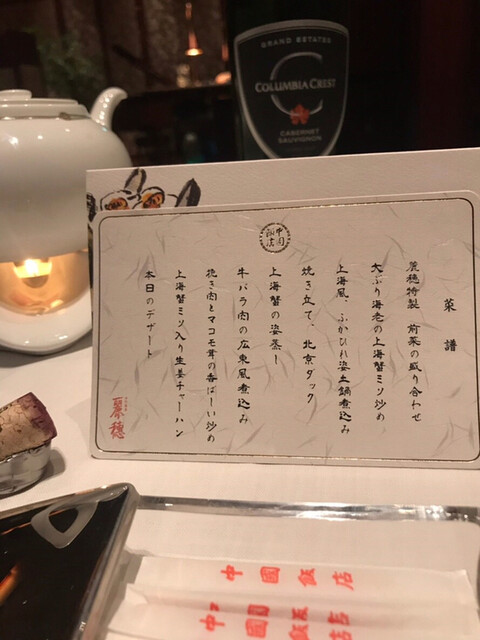 GRAND ESTATES
COLUMBIA CREST
CABERNET
SAUVIGNON
菜譜
麗穂特製 前菜の盛り合わせ
大ぶり海老の上海蟹ミソ炒め
上海風、ふかひれ姿土鍋煮込み
焼き立て、北京ダック
上海蟹の姿蒸し
牛バラ肉の広東風煮込み
挽き肉とマコモ茸の香ばしい炒め
上海蟹ミソ入り生姜チャーハン
本日のデザート
麗穂
中國飯店
中國飯店